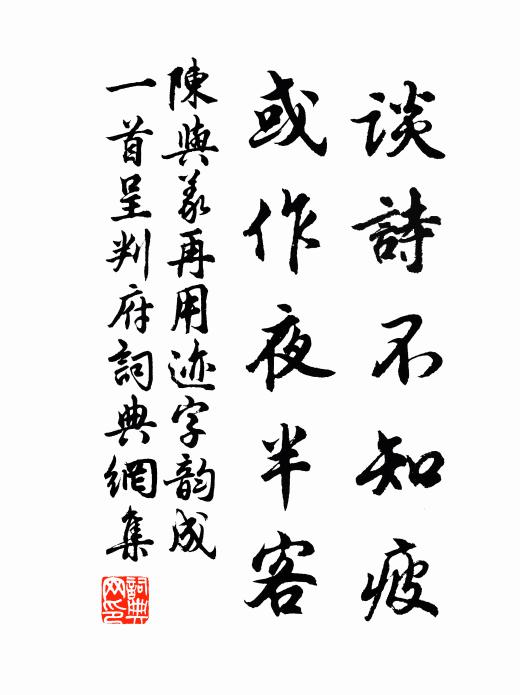 談詩不知疲
或作夜半客
陳與義再用迹字韵成
一首呈判府詞典網集
詞典
网印